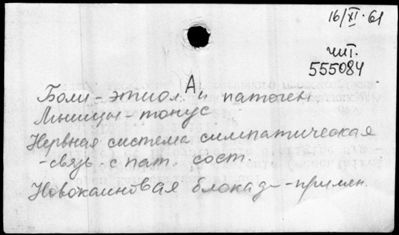 16/XI-61
чит.
555084
А
Боли - этиол. и патоген.
Мышцы - тонус
Нервная система симпатическая
- связь с пат. сост.
Новокаиновая блокада - примен.